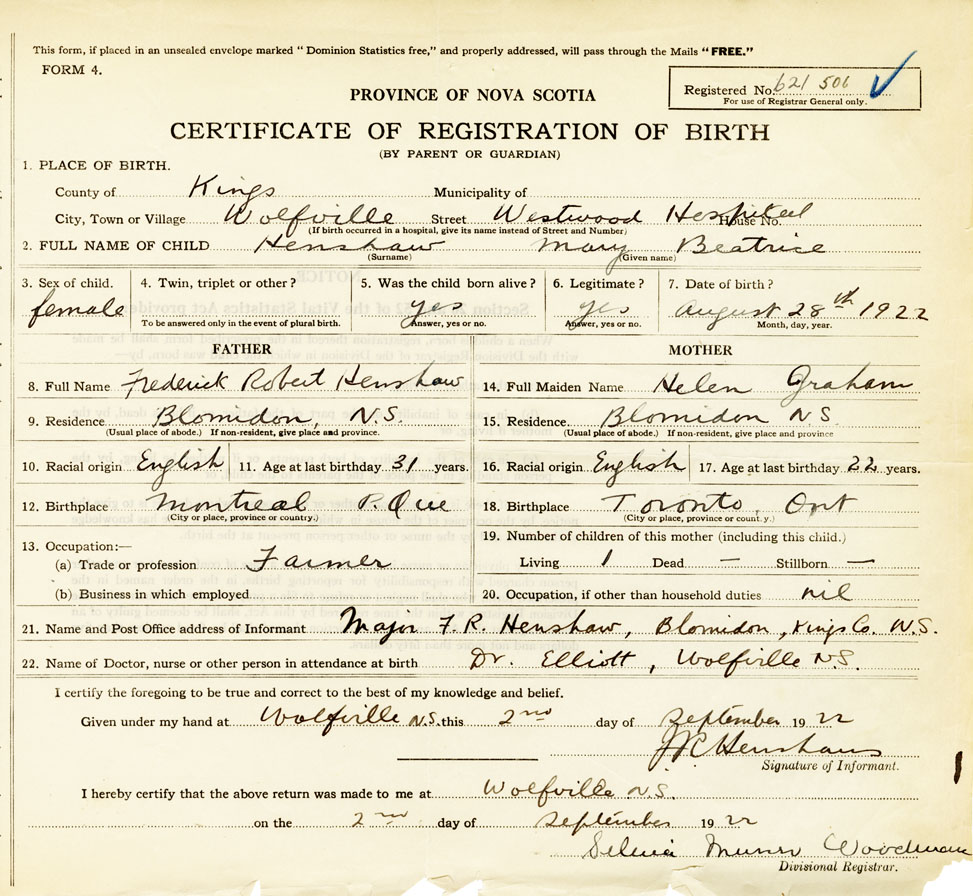 This form, if placed in an unsealed envelope marked " Dominion Statistics free," and properly addressed, will pass through the Mails "FREE."
FORM 4.
Registered No. 621 506
For use of Registrar General only.
PROVINCE OF NOVA SCOTIA
CERTIFICATE OF REGISTRATION OF BIRTH
(BY PARENT OR GUARDIAN)
1. PLACE OF BIRTH.
County of Kings Municipality of
City, Town or Village Wolfville Street Westwood Hospital House No.
(If birth occurred in a hospital, give its name instead of Street and Number)
2. FULL NAME OF CHILD Henshaw Mary Beatrice
(Surname) (Given name)
3. Sex of child. 4. Twin, triplet or other? 5. Was the child born alive? 6. Legitimate? 7. Date of birth?
female yes yes August 28th 1922
To be answered only in the event of plural birth. Answer, yes or no. Answer, yes or no. Month, day, year.
FATHER MOTHER
8. Full Name Frederick Robert Henshaw 14. Full Maiden Name Helen Graham
9. Residence Blomidon, N.S. 15. Residence Blomidon N.S.
(Usual place of abode.) If non-resident, give place and province. (Usual place of abode.) If non-resident, give place and province
10. Racial origin English 11. Age at last birthday 31 years. 16. Racial origin English 17. Age at last birthday 22 years.
12. Birthplace Montreal P. Que 18. Birthplace Toronto, Ont
(City or place, province or country.) (City or place, province or count y.)
13. Occupation:— 19. Number of children of this mother (including this child.)
(a) Trade or profession Farmer Living 1 Dead — Stillborn —
(b) Business in which employed 20. Occupation, if other than household duties nil
21. Name and Post Office address of Informant Major F. R. Henshaw, Blomidon, Kings Co. N.S.
22. Name of Doctor, nurse or other person in attendance at birth Dr. Elliott, Wolfville N.S.
I certify the foregoing to be true and correct to the best of my knowledge and belief.
Given under my hand at Wolfville N.S. this 2nd day of September 1922
F R Henshaw
Signature of Informant.
I hereby certify that the above return was made to me at Wolfville N.S.
on the 2nd day of September 1922
Woodman
Divisional Registrar.